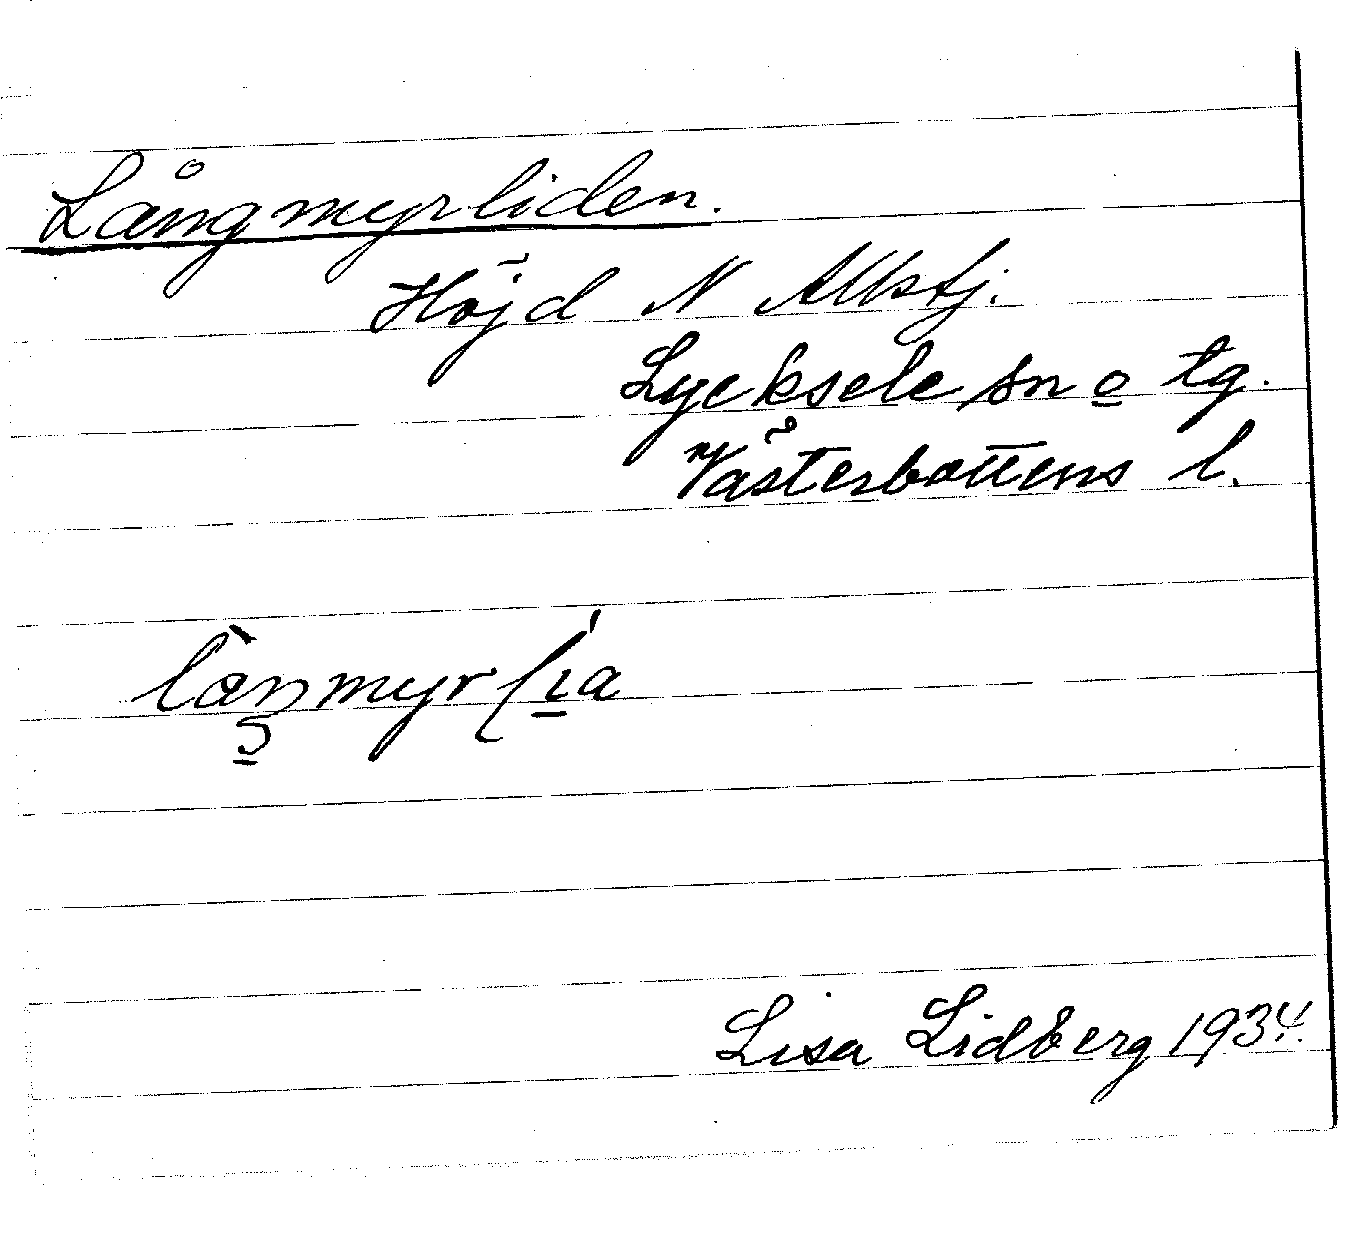 Långmyrliden.
Höjd N Allstj.
Lycksele sn o tg.
Västerbottens l.
Lisa Lidberg 1934.